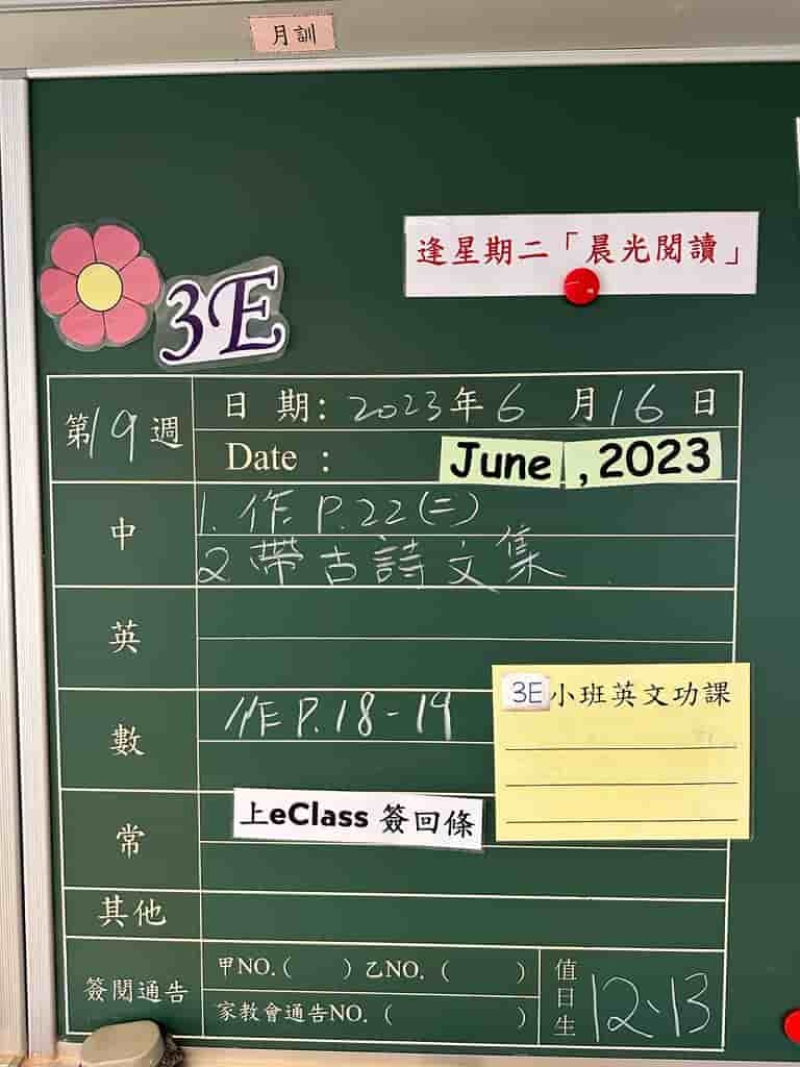 月訓
逢星期二「晨光閱讀」
3E
第19週
日 期: 2023年6 月16 日
Date : June , 2023
中
1. 作 P.22(二)
2 帶古詩文集
英
3E 小班英文功課
數
作 P.18-19
常
上eClass 簽回條
其他
簽閱通告
甲NO.( ) 乙NO. ( )
家教會通告NO. ( )
值日生 12、13